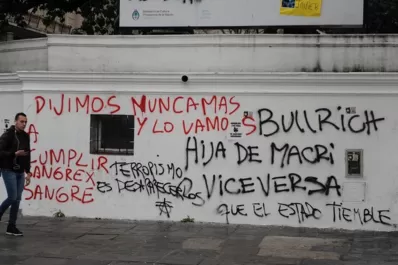 DIJIMOS NUNCAMAS
Y LO VAMOS
A
CUMPLIR
SANGREX
SANGRE
TERRORISMO
ES DESAPARECER
BULLRICH
HIJA DE MACRI
VICEVERSA
QUE EL ESTADO TIEMBLE